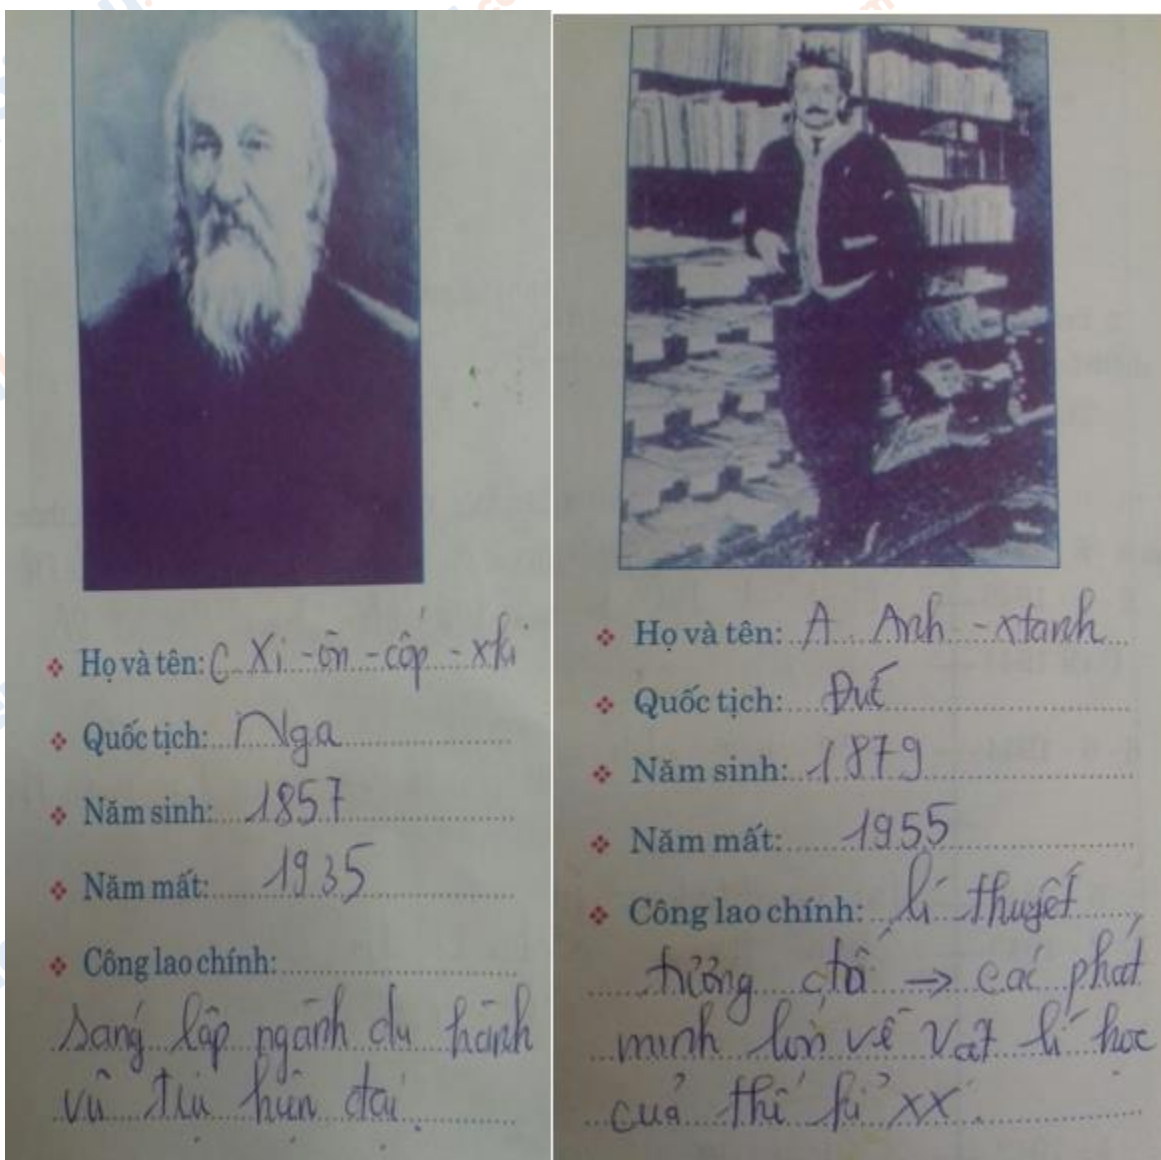 Họ và tên: C. Xi - ôn - cốp - xki
Quốc tịch: Nga
Năm sinh: 1857
Năm mất: 1935
Công lao chính:
sáng lập ngành du hành
vũ trụ hiện đại
Họ và tên: A. Anh - xtanh
Quốc tịch: Đức
Năm sinh: 1879
Năm mất: 1955
Công lao chính: lí thuyết
tương đối → các phát
minh lớn về Vật lí học
của thế kỉ XX.